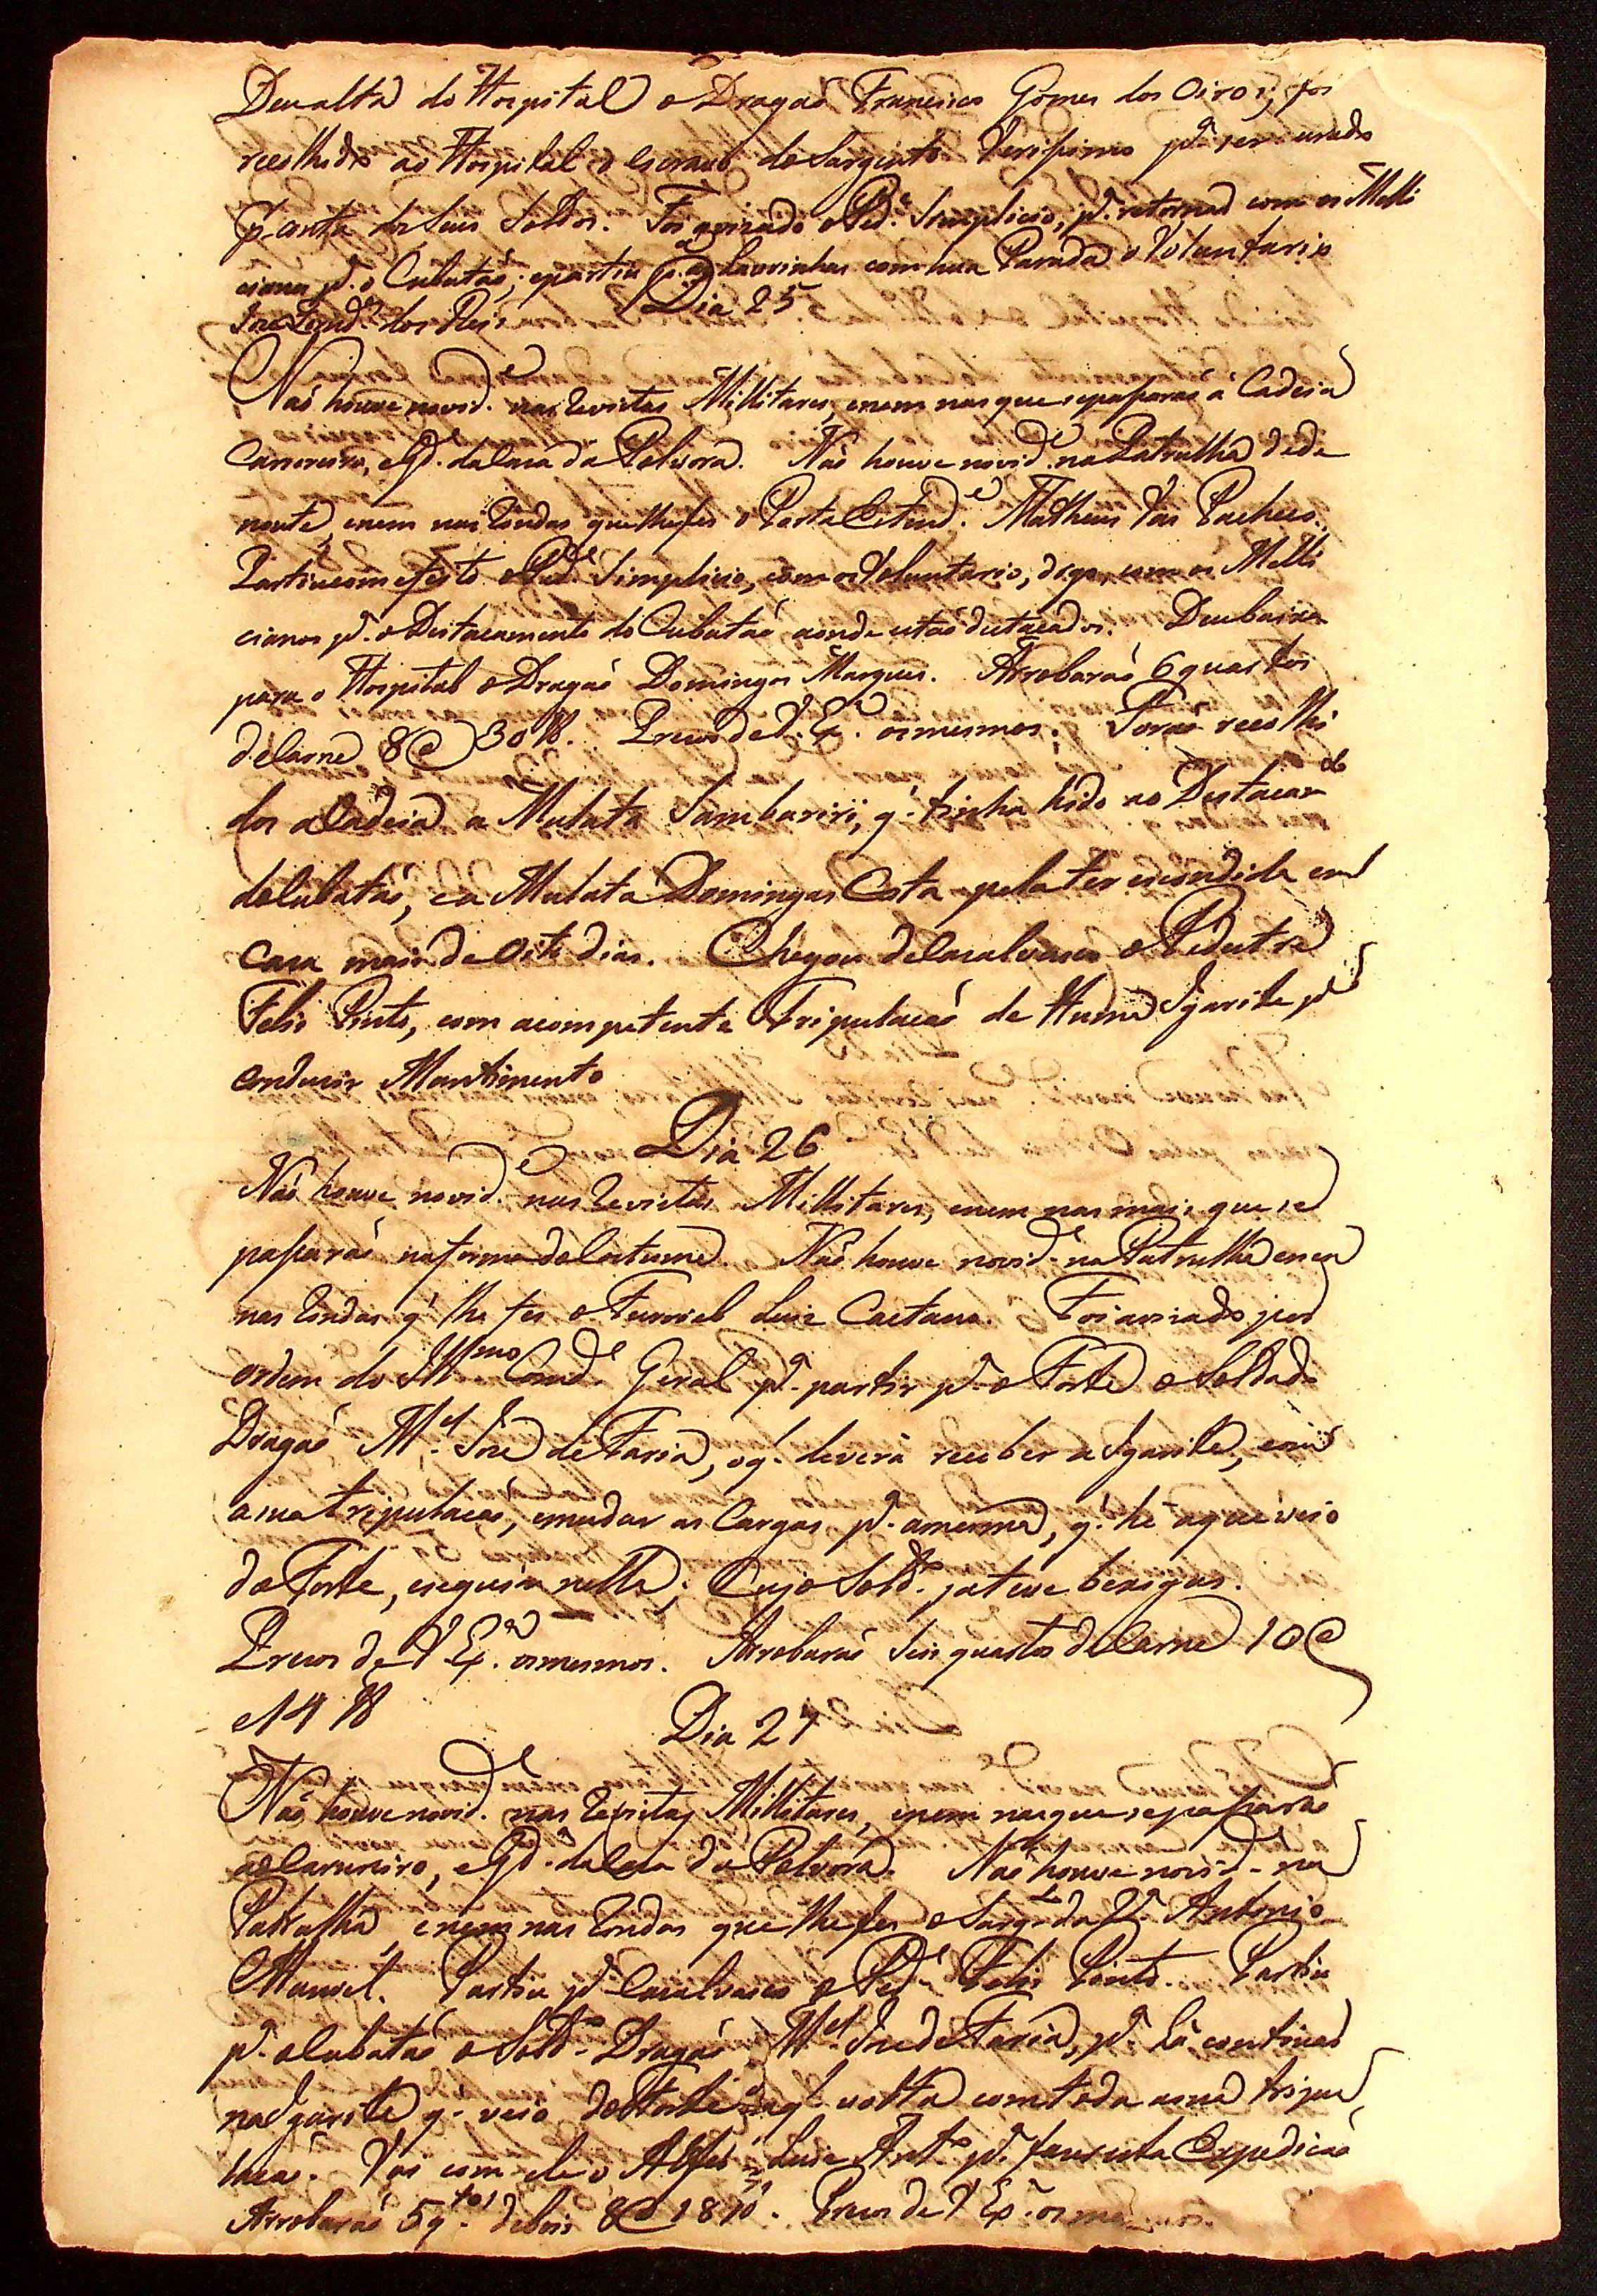 Deu alta do Hospital o Dragaõ Francisco Gomes dos Oiros; foi
recolhido ao Hospital o escravo do Sargento Verissimo pª ser curado
p. conta dos Seus Soldos. Foi avizado o Ped.e Simplicio, pª. retornar com os Milli
cianos pª. o Cubataõ; e partiu pª. as Lavrinhas com hua Parada o Voluntario
Joze dos Reis
Dia 25
Naõ houve novid.e nas Revistas Millitares, enem nas que se passaraõ à Cadeia
Carcereiro, e Gdª. da Caza da Polvora. Naõ houve novid.e na Patrulha dede
noute, enem nas Rondas que lhe fes o Porta Estand.e Matheus Vas Pacheco.
Partiu com efeito o Ped.e Simplicio, com o Voluntario, digo, com os Milli
cianos pª. o Destacamento do Cubataõ aonde estaõ destacados. Deu baixa
para o Hospital o Dragaõ Domingos Marques. Arrobaraõ 6 quartos
de Carne 8@ 30 lb. Prezos de V. Ex.ª os mesmos. Foraõ recolhi
dos a Cadeia a Mulata Sambariri, q. tinha hido ao Destacam.to
do Cubataõ, e a Mulata Domingas Costa pela ter escondida em
Caza mais de Oito dias. Chegou de Cazalvasco o Pedestre
Felis Pinto, com a competente Tripulacaõ de Huma Igarite pª
conduzir Mantimento
Dia 26
Naõ houve novid.e nas Revistas Millitares, enem nas mais que se
passaraõ na forma do Costume. Naõ houve novid.e na Patrulha enem
nas Rondas q. lhe fes o Furriel Luiz Caetano. Foi avizado por
ordem do Ill.mo Comd.e Geral pª. partir pª. o Forte o Soldado
Dragaõ M.el Joze de Faria, o q. deverà receber a Igarite, com
a sua tripulacaõ, e mudar as Cargas pª. a mesma, q. he a que veio
do Forte, e seguir nella; Cujo Sold.o ja teve bexigas.
Prezos de V Ex.ª os mesmos. Arrobaraõ Seis quartos de Carne 10@
e 14 lb
Dia 27
Naõ houve novid.e nas Revistas Millitares, enem nas que se passaraõ
ao Carcereiro, e Gdª. da Caza da Polvora. Naõ houve novid.e na
Patrulha enem nas Rondas que lhe fes o Sarg.to da Vª. Antonio
Manoel. Partiu pª Cazalvasco o Ped.e Felis Pinto. Partiu
pª. o Cubataõ o Sold.o Dragaõ M.el Joze de Faria, pª. là continuar
na Igarite q. veio do Forte a q.l volta com toda a sua tripu
lacaõ. Vai com ele o Alfes Luiz Ant.o pª. fazer esta Expedicaõ
Arrobaraõ 5 q.tos de bois 8@ 18 lb. Prezos de V Ex.ª os mesmos.